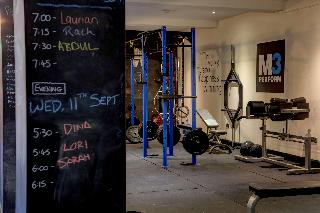 7:00 - Laurian
7:15 - Rach
7:30 - ABDUL
7:45 -
EVENING
WED. 11TH SEPT
5:30 - DINA
5:45 - LORI
6:00 - SARAH
6:15 -
M3
PERFORM